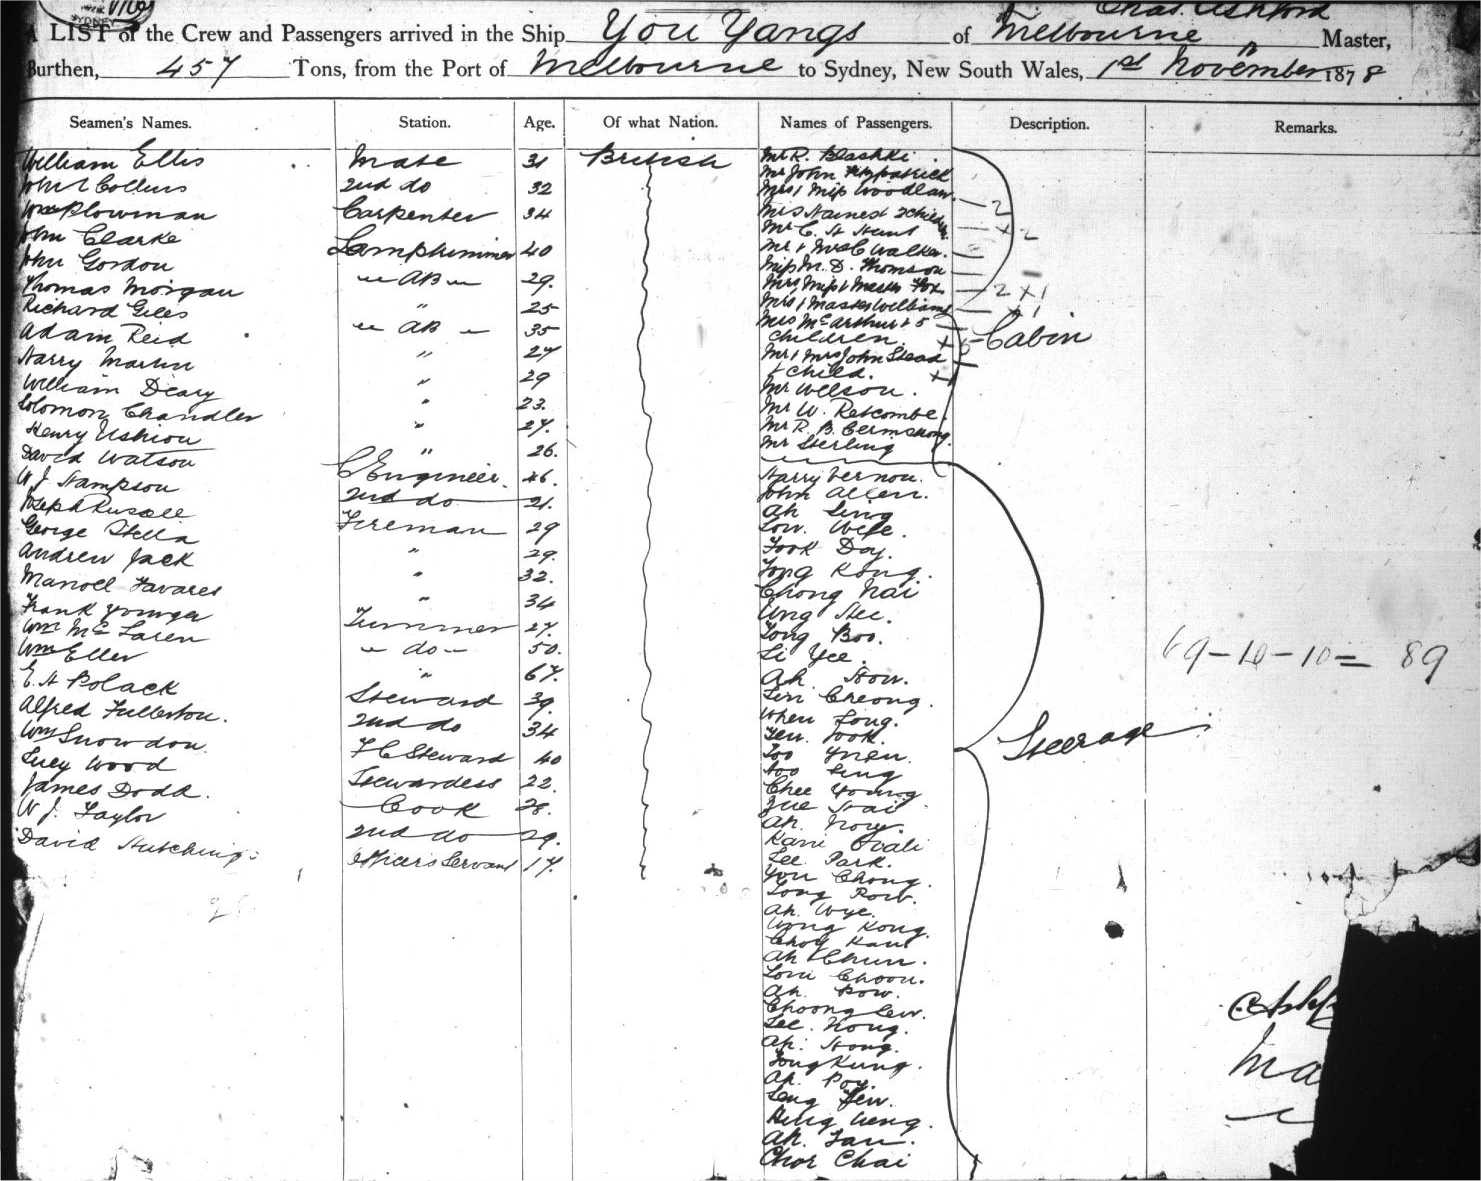 SYDNEY
Chas. Ashford
A LIST of the Crew and Passengers arrived in the Ship You Yangs of Melbourne Master,
Burthen, 457 Tons, from the Port of Melbourne to Sydney, New South Wales, 1st November 1878
Seamen's Names. Station. Age. Of what Nation. Names of Passengers. Description. Remarks.
William Ellis Mate 31 British
John Collins 2nd do 32
Wm Plowman Carpenter 34
John Clarke Lamptrimmer 40
John Gordon AB 29.
Thomas Morgan " 25
Richard Giles AB 35
Adam Reid " 27
Harry Martin " 29
William Deary " 23.
Solomon Chandler " 27.
Henry " 26.
David Watson C Engineer. 46.
W J Hampson 2nd do 21.
Joseph Russell Fireman 29
George Stella " 29.
Andrew Jack " 32.
Manoel Tavares " 34
Frank Younger Trimmer 27.
Wm McLaren do 50.
Wm Eller " 67.
E. H Polack Steward 39.
Alfred Fullerton. 2nd do 34
Wm Snowdon F C Steward 40
Lucy Wood Stewardess 22.
James Dodd. Cook 28.
W J. Taylor 2nd do 29.
David Hutchings Officers Servant 17.
Mr R. Blashki.
Mr John Kirkpatrick
Mrs & Miss Woodlaw.
Mrs 2 Children
Mr C. H
Mr & Mrs C Walker.
Miss M. D. Thomson
Mrs Miss & Master Fox
Mrs & Master Williams
Mrs McArthur & 5
Children.
Mr & Mrs John Stead
& Child.
Mr Wilson.
Mr W. Retcombe.
Mr R. B.
Mr Sterling
Cabin
Harry Vernon.
John Allen.
Ah Sing
Low Wise.
Fook Doy.
Fong Kong.
Chong Nai
Ung Hee.
Fong Boo.
Li Yee.
Ah How.
Lin Cheong.
When Long.
Yew Fook.
Too Yuen.
Soo Sing
Chee Young
Yue Hai
Ah. Now.
Kani
Lee Park.
You Chong.
Long Row.
Ah. Wye.
Wong Kong.
Choy Kan
Ah Chun.
Low Choon.
Ah. Bow.
Choong Lew.
Lee. Nong.
Ah. Hong.
Fong Kung.
Ah. Poy.
Leng Yew.
Hing Weng.
Ah. Fan.
Chor Chai
Steerage
69-10-10= 89
C Ashf
Ma